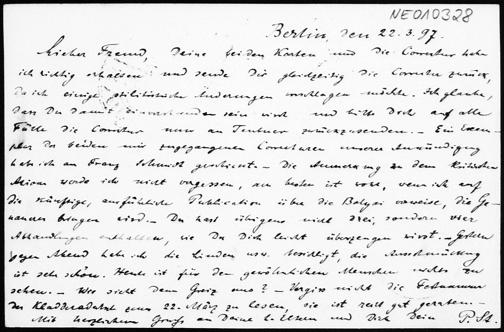 NE010328
Berlin, den 22.3.97.
Lieber Freund, Deine beiden Karten und die Correctur habe
ich richtig erhalten und sende Dir gleichzeitig die Correctur zurück,
da ich einige stilistische Änderungen vorschlagen möchte. Ich glaube,
dass Du damit einverstanden sein wirst und bitte Dich auf alle
Fälle die Correctur nur an Teubner zurückzusenden. – Ein Exem-
plar der beiden mir zugegangenen Correcturen unserer Ankündigung
habe ich an Franz Schmidt geschickt. – Die Anmerkung zu dem
werde ich nicht vergessen, am besten ist wohl, wenn ich auf
die künftige, ausführliche Publication über die Bolyai verweise, die
bringen wird. – Du hast übrigens nicht drei, sondern vier
Abhandlungen enthalten, wie Du Dich leicht überzeugen wirst. – Gestern
gegen Abend habe ich die Linden usw. besichtigt, die Ausschmückung
ist sehr schön. Heute ist für den gewöhnlichen Menschen nichts zu
sehen. – Vergiss nicht die Festnummer
des Kladderadatsch zum 22. März zu lesen, sie ist recht gut geraten. –
Mit herzlichem Gruss an Deine l. Eltern und Dich Dein P. St.